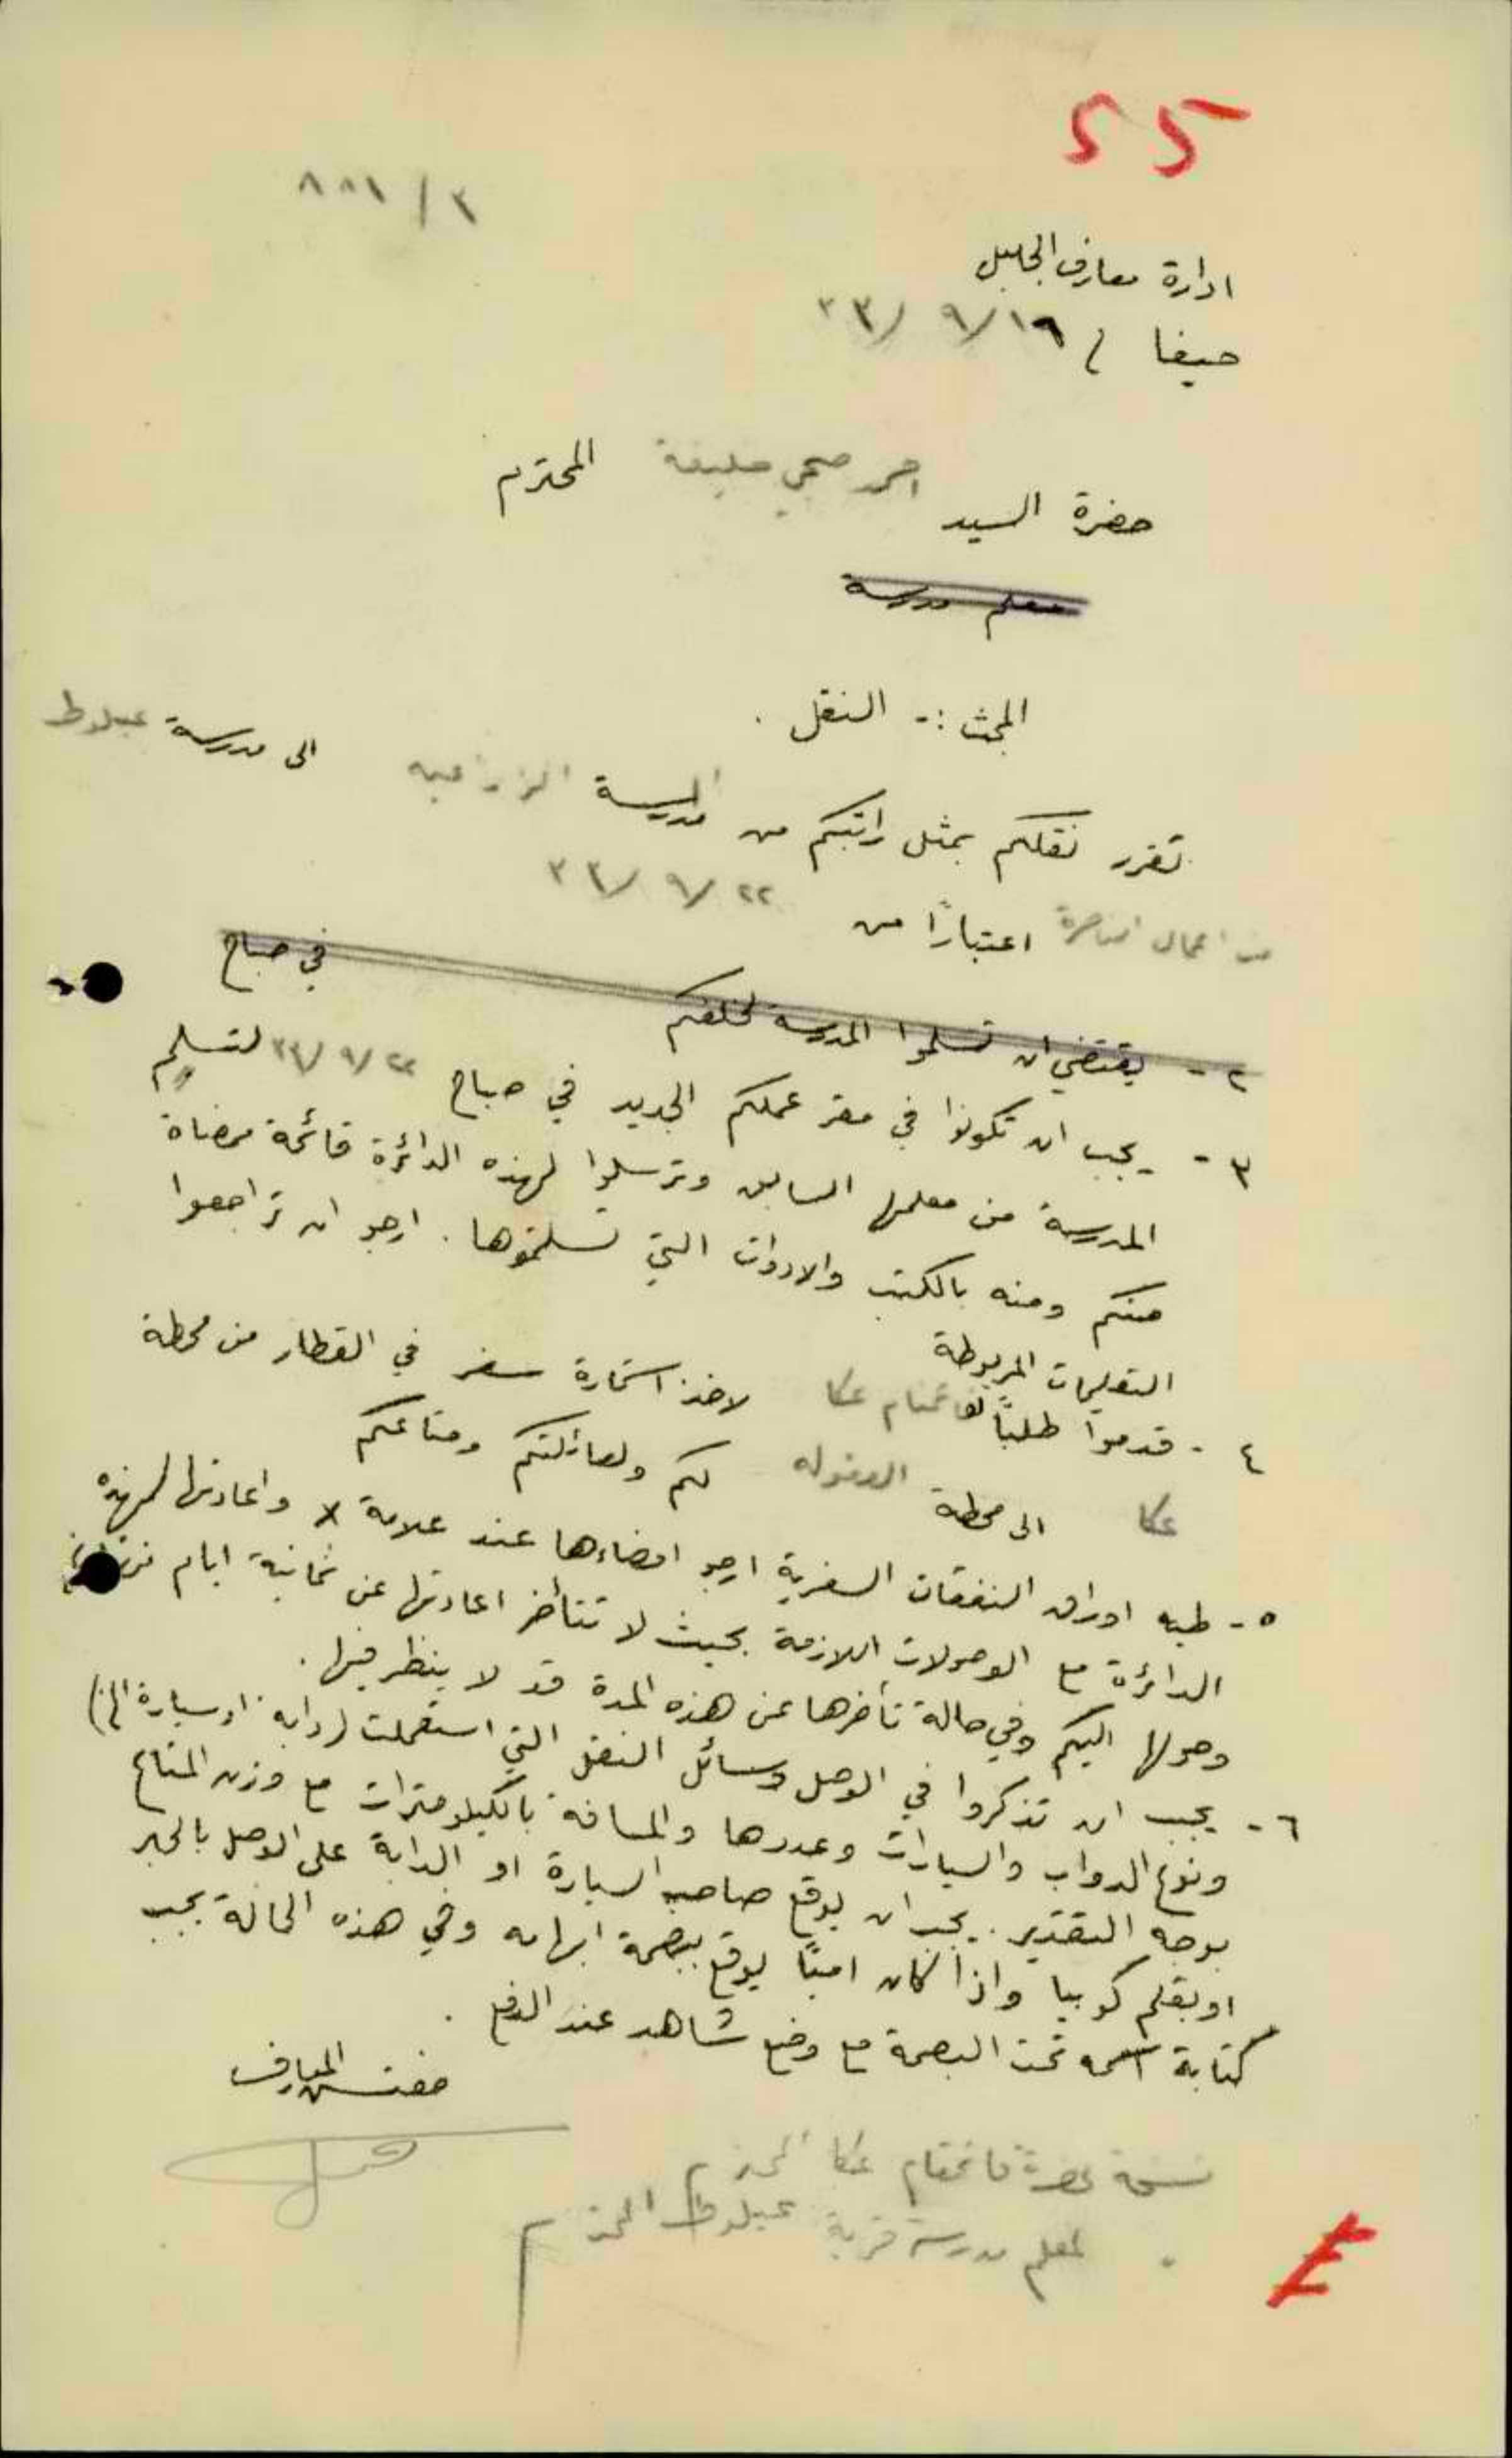 55
٣/١٨٨
ادارة معارف الجليل
حيفا / ١٩/٩/٣٣
حضرة السيد احمد صبحي خليفة المحترم
معلم مدرسة
المبحث :- النقل .
تقرر نقلكم بمثل راتبكم من المدرسة الزراعيه الى مدرسة عيلوط
من اعمال الناصرة اعتبارًا من ٢٢/٩/٣٣
٢- يقتضي ان تسلموا المدرسة لخلفكم في صباح
٣- يجب ان تكونوا في مقر عملكم الجديد في صباح ٢٢/٩/٣٣ لتسلم
المدرسة من معلمها السابق وترسلوا لهذه الدائرة قائمة ممضاة
منكم ومنه بالكتب والادوات التي تسلمتموها . ارجو ان تراجعوا
التعليمات المربوطة
٤- قدموا طلبًا لقائمقام عكا لاخذ استمارة سفر في القطار من محطة
عكا الى محطة العفوله لكم ولعائلتكم ومتاعكم
٥- طيه اوراق النفقات السفرية ارجو امضاءها عند علامة x واعادتها لهذه
الدائرة مع الوصولات اللازمة بحيث لا تتأخر اعادتها عن ثمانية ايام من
وصولها اليكم وفي حالة تأخرها عن هذه المدة قد لا ينظر فيها .
٦- يجب ان تذكروا في الوصل وسائل النقل التي استعملت (دابة او سيارة الخ)
ونوع الدواب والسيارات وعددها والمسافة بالكيلومترات مع وزن المتاع
بوجه التقدير . يجب ان يوقع صاحب السيارة او الدابة على الوصل بالحبر
او بقلم كوبيا واذا كان اميًا يوقع ببصمة ابهامه وفي هذه الحالة يجب
كتابة اسمه تحت البصمة مع وضع شاهد عند الدفع .
مفتش المعارف
نسخة لحضرة قائمقام عكا المحترم
" لمعلم مدرسة قرية عيلوط المحترم